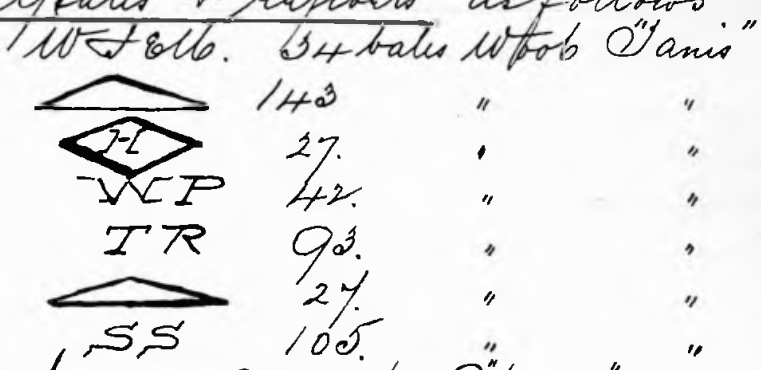 as follows
34 bales Wool "Tanis"
143 " "
H 27. " "
WP 42. " "
TR 93. " "
27. " "
SS 105. " "